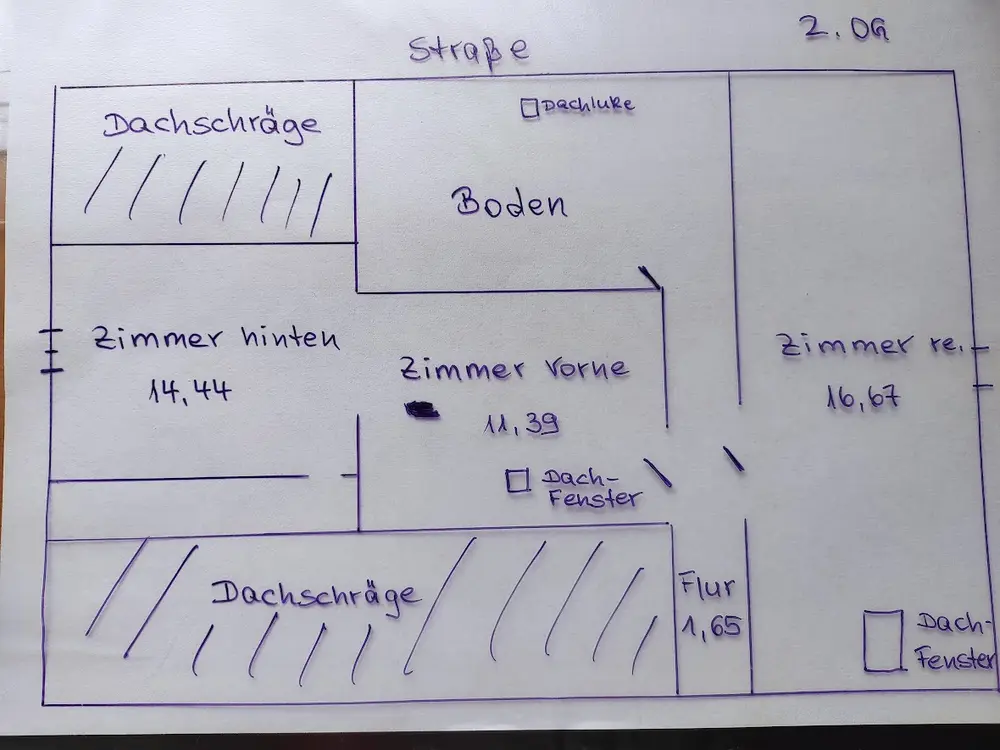 Straße
2. OG
Dachschräge
Dachluke
Boden
Zimmer hinten
14,44
Zimmer vorne
11,39
Zimmer re.
16,67
Dach-
Fenster
Dachschräge
Flur
1,65
Dach-
Fenster